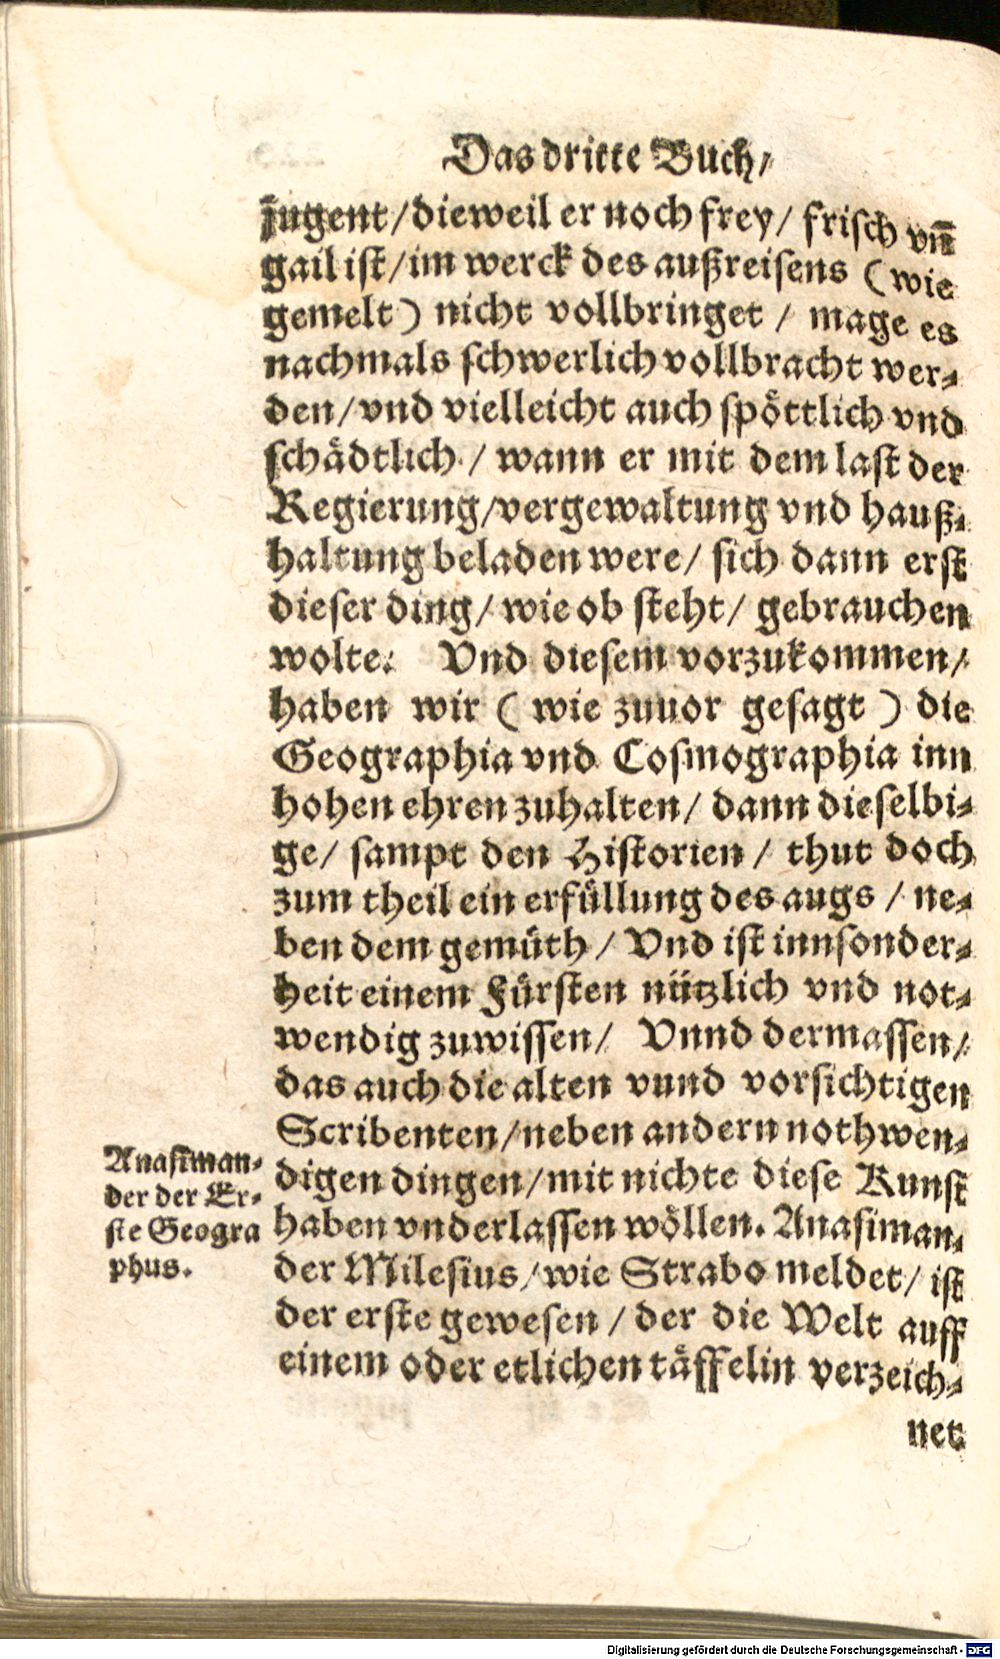 Das dritte Buch/
jugent/dieweil er noch frey/ frisch vn̄
gail ist/im werck des außreisens (wie
gemelt) nicht vollbringet / mage es
nachmals schwerlich vollbracht wer⸗
den/vnd vielleicht auch spöttlich vnd
schädtlich / wann er mit dem last der
Regierung/vergewaltung vnd hauß⸗
haltung beladen were/ sich dann erst
dieser ding/ wie ob steht/ gebrauchen
wolte. Vnd diesem vorzukommen/
haben wir ( wie zuuor gesagt ) die
Geographia vnd Cosmographia inn
hohen ehren zuhalten/ dann dieselbi⸗
ge/ sampt den Historien / thut doch
zum theil ein erfüllung des augs / ne⸗
ben dem gemüth / Vnd ist innsonder⸗
heit einem Fürsten nützlich vnd not⸗
wendig zuwissen/ Vnnd dermassen/
das auch die alten vnnd vorsichtigen
Scribenten/neben andern nothwen⸗
digen dingen/mit nichte diese Kunst
haben vnderlassen wöllen. Anasiman⸗
der Milesius/wie Strabo meldet/ ist
der erste gewesen / der die Welt auff
einem oder etlichen täffelin verzeich⸗
net
Anasiman⸗
der der Er⸗
ste Geogra
phus.
Digitalisierung gefördert durch die Deutsche Forschungsgemeinschaft - DFG